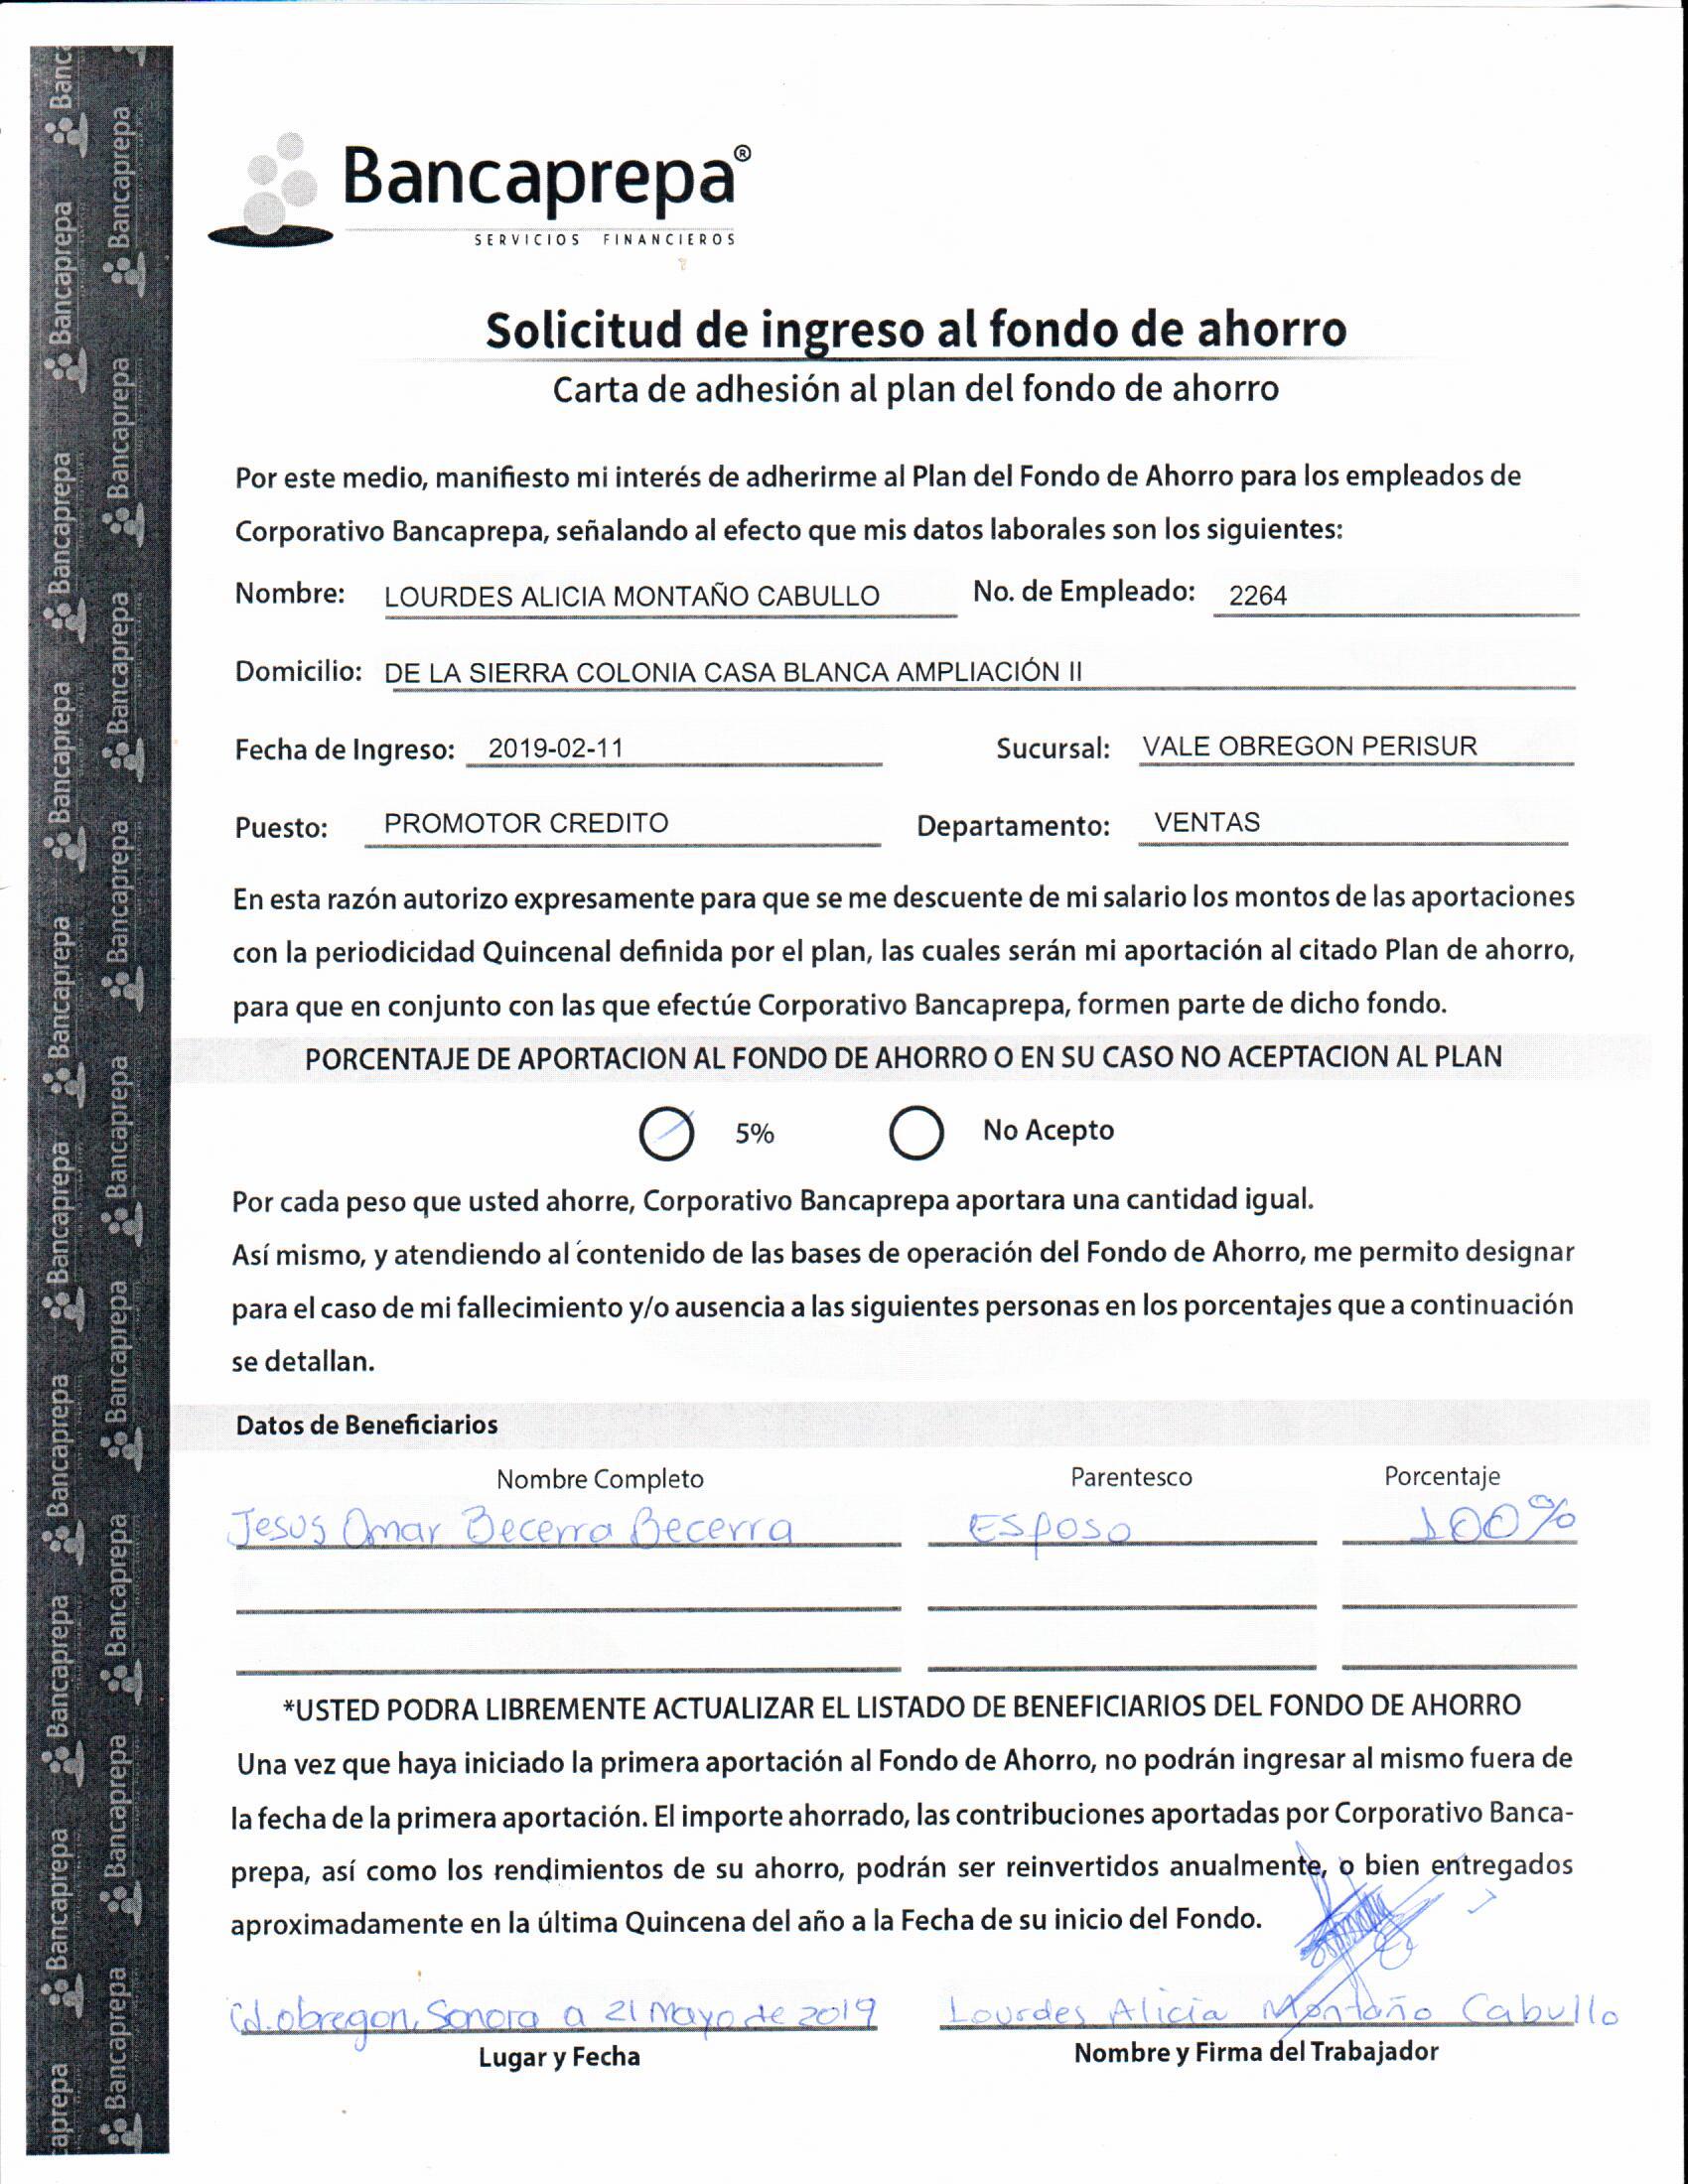 Bancaprepa®
SERVICIOS FINANCIEROS
Solicitud de ingreso al fondo de ahorro
Carta de adhesión al plan del fondo de ahorro
Por este medio, manifiesto mi interés de adherirme al Plan del Fondo de Ahorro para los empleados de
Corporativo Bancaprepa, señalando al efecto que mis datos laborales son los siguientes:
Nombre: LOURDES ALICIA MONTAÑO CABULLO No. de Empleado: 2264
Domicilio: DE LA SIERRA COLONIA CASA BLANCA AMPLIACIÓN II
Fecha de Ingreso: 2019-02-11 Sucursal: VALE OBREGON PERISUR
Puesto: PROMOTOR CREDITO Departamento: VENTAS
En esta razón autorizo expresamente para que se me descuente de mi salario los montos de las aportaciones
con la periodicidad Quincenal definida por el plan, las cuales serán mi aportación al citado Plan de ahorro,
para que en conjunto con las que efectúe Corporativo Bancaprepa, formen parte de dicho fondo.
PORCENTAJE DE APORTACION AL FONDO DE AHORRO O EN SU CASO NO ACEPTACION AL PLAN
5% No Acepto
Por cada peso que usted ahorre, Corporativo Bancaprepa aportara una cantidad igual.
Así mismo, y atendiendo al contenido de las bases de operación del Fondo de Ahorro, me permito designar
para el caso de mi fallecimiento y/o ausencia a las siguientes personas en los porcentajes que a continuación
se detallan.
Datos de Beneficiarios
Nombre Completo Parentesco Porcentaje
Jesus Omar Becerra Becerra Esposo 100%
*USTED PODRA LIBREMENTE ACTUALIZAR EL LISTADO DE BENEFICIARIOS DEL FONDO DE AHORRO
Una vez que haya iniciado la primera aportación al Fondo de Ahorro, no podrán ingresar al mismo fuera de
la fecha de la primera aportación. El importe ahorrado, las contribuciones aportadas por Corporativo Banca-
prepa, así como los rendimientos de su ahorro, podrán ser reinvertidos anualmente, o bien entregados
aproximadamente en la última Quincena del año a la Fecha de su inicio del Fondo.
Cd. obregon, Sonora a 21 Mayo de 2019 Lourdes Alicia Montaño Cabullo
Lugar y Fecha Nombre y Firma del Trabajador